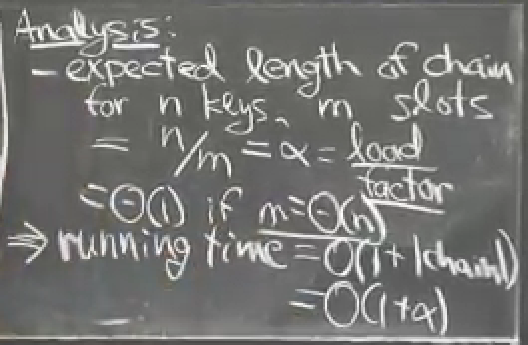 Analysis:
- expected length of chain
for n keys, m slots
= n/m = α = load
factor
= Θ(1) if m = Θ(n)
⇒ running time = O(1 + |chain|)
= O(1+α)